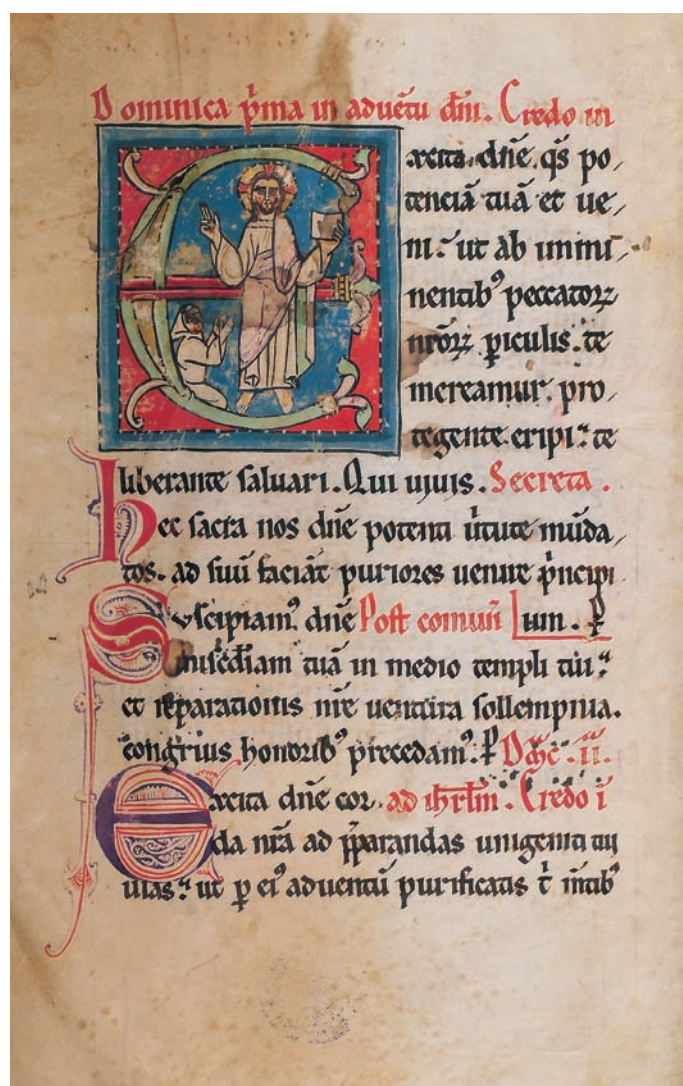 Dominica p̄ma in aduētu dñi. Credo in
Excita. dñe. qs̄ po/
tenciā tuā et ue/
ni. ut ab immi/
nentibꝰ peccatoꝝ
nr̄oꝝ ꝑiculis. te
mereamur. pro/
tegente. eripi. te
liberante saluari. Qui uiuis. Secreta.
Hec sacra nos dñe potenti ũtute mūda/
tos. ad suū faciāt puriores uenire p̃ncipi
Suscipiamꝰ dñe Post comuñ um. P
misc̄diam tuā in medio templi tui.
et reparationis nr̄e uentura sollempnia.
congruis honoribꝰ precedamꝰ. P Dmc̄. ii.
Excita dñe cor. ad ihrl̄m. Credo ī
da nr̄a ad p̄parandas unigeniti tui
uias. ut ꝑ eiꝰ aduentū purificatis t̄ m̄tibꝰ